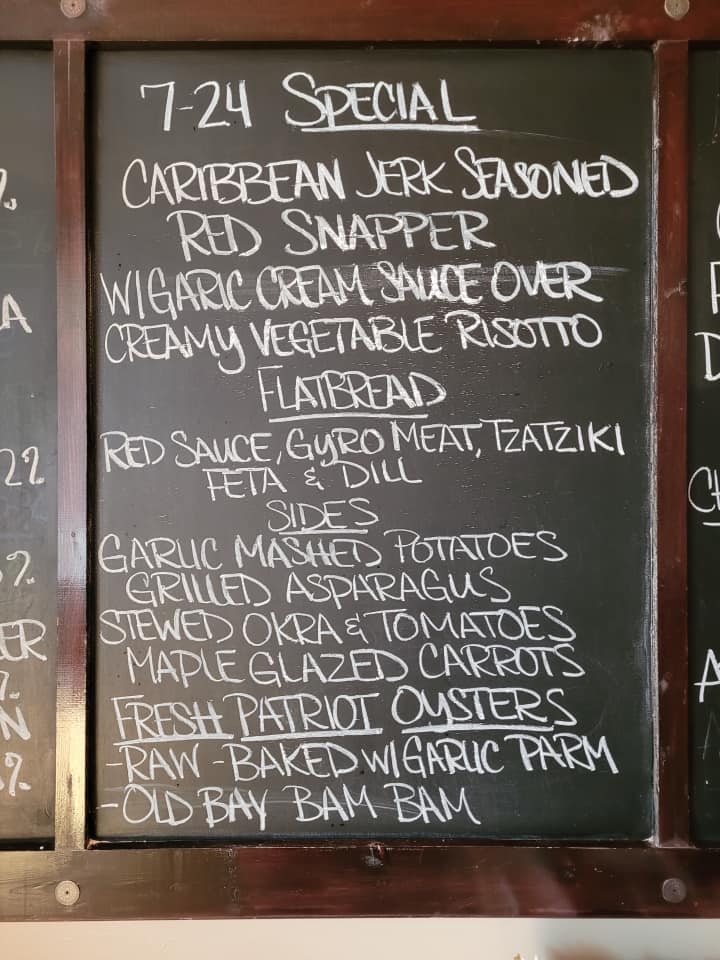 7-24 SPECIAL
CARIBBEAN JERK SEASONED
RED SNAPPER
W/GARIC CREAM SAUCE OVER
CREAMY VEGETABLE RISOTTO
FLATBREAD
RED SAUCE, GYRO MEAT, TZATZIKI
FETA & DILL
SIDES
GARLIC MASHED POTATOES
GRILLED ASPARAGUS
STEWED OKRA & TOMATOES
MAPLE GLAZED CARROTS
FRESH PATRIOT OYSTERS
-RAW -BAKED W/GARLIC PARM
-OLD BAY BAM BAM